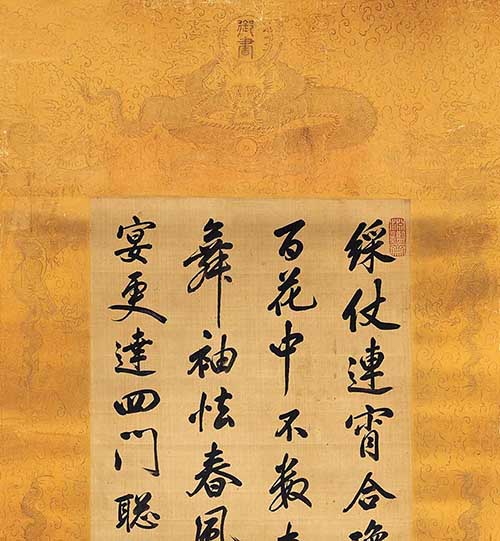 御書
綵仗連宵合
百花中不數
舞袖怯春風
宴更達四門聰